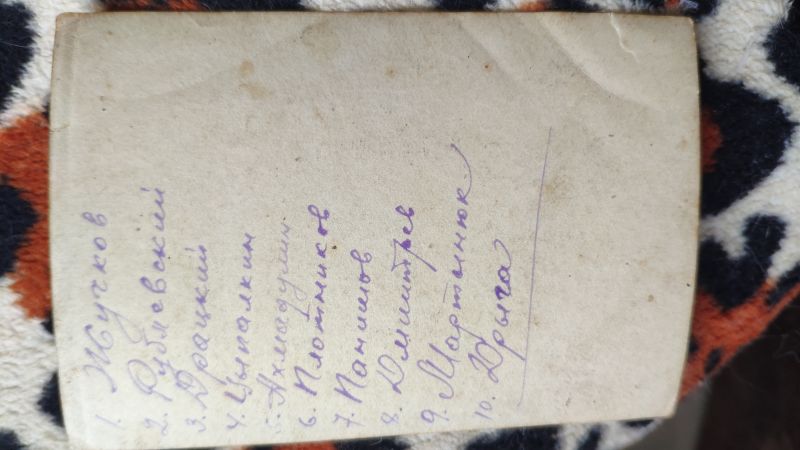 1. Жучков
2. Рублевский
3. Драцкий
4. Цыпалкин
5. Ахмадулин
6. Плотников
7. Панинов
8. Дмиитрев
9. Мартынюк
10. Дрыга